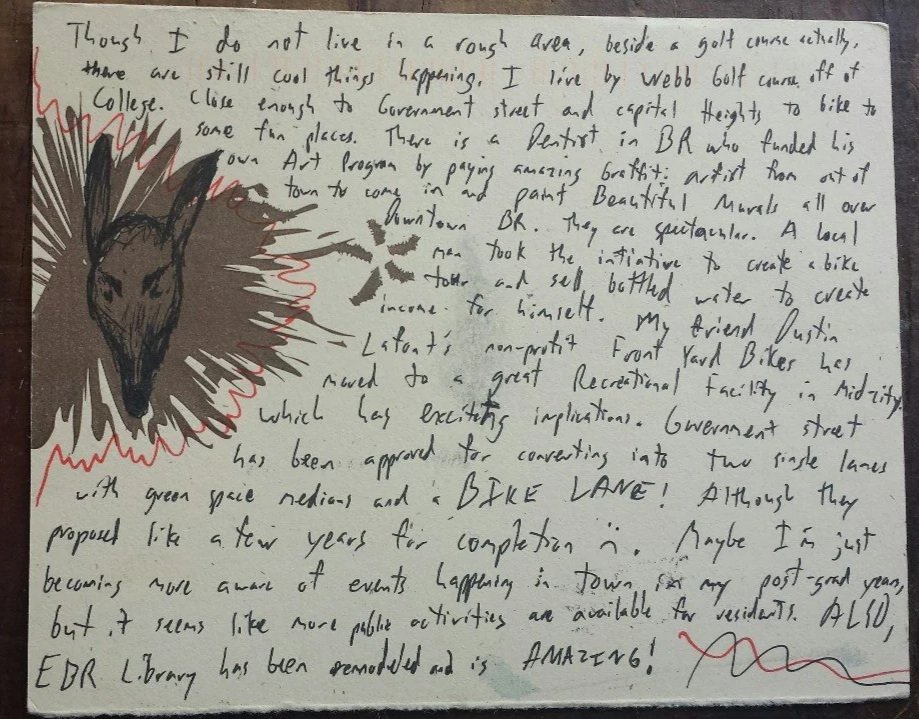 Though I do not live in a rough area, beside a golf course actually,
there are still cool things happening. I live by Webb Golf course off of
College. Close enough to Government street and capital Heights to bike to
some fun places. There is a Dentist in BR who funded his
own Art Program by paying amazing Graffiti artist from out of
town to come in and paint Beautiful Murals all over
Downtown BR. They are spectacular. A local
man took the intiative to create a bike
tour and sell bottled water to create
income for himself. My friend Dustin
Lafont's non-profit Front Yard Bikes has
moved to a great Recreational Facility in Mid-city,
which has exciting implications. Government street
has been approved for converting into two single lanes
with green space medians and a BIKE LANE! Although they
proposed like a few years for completion :(. Maybe I'm just
becoming more aware of events happening in town in my post-grad years,
but it seems like more public activities are available for residents. ALSO,
EBR Library has been remodeled and is AMAZING!